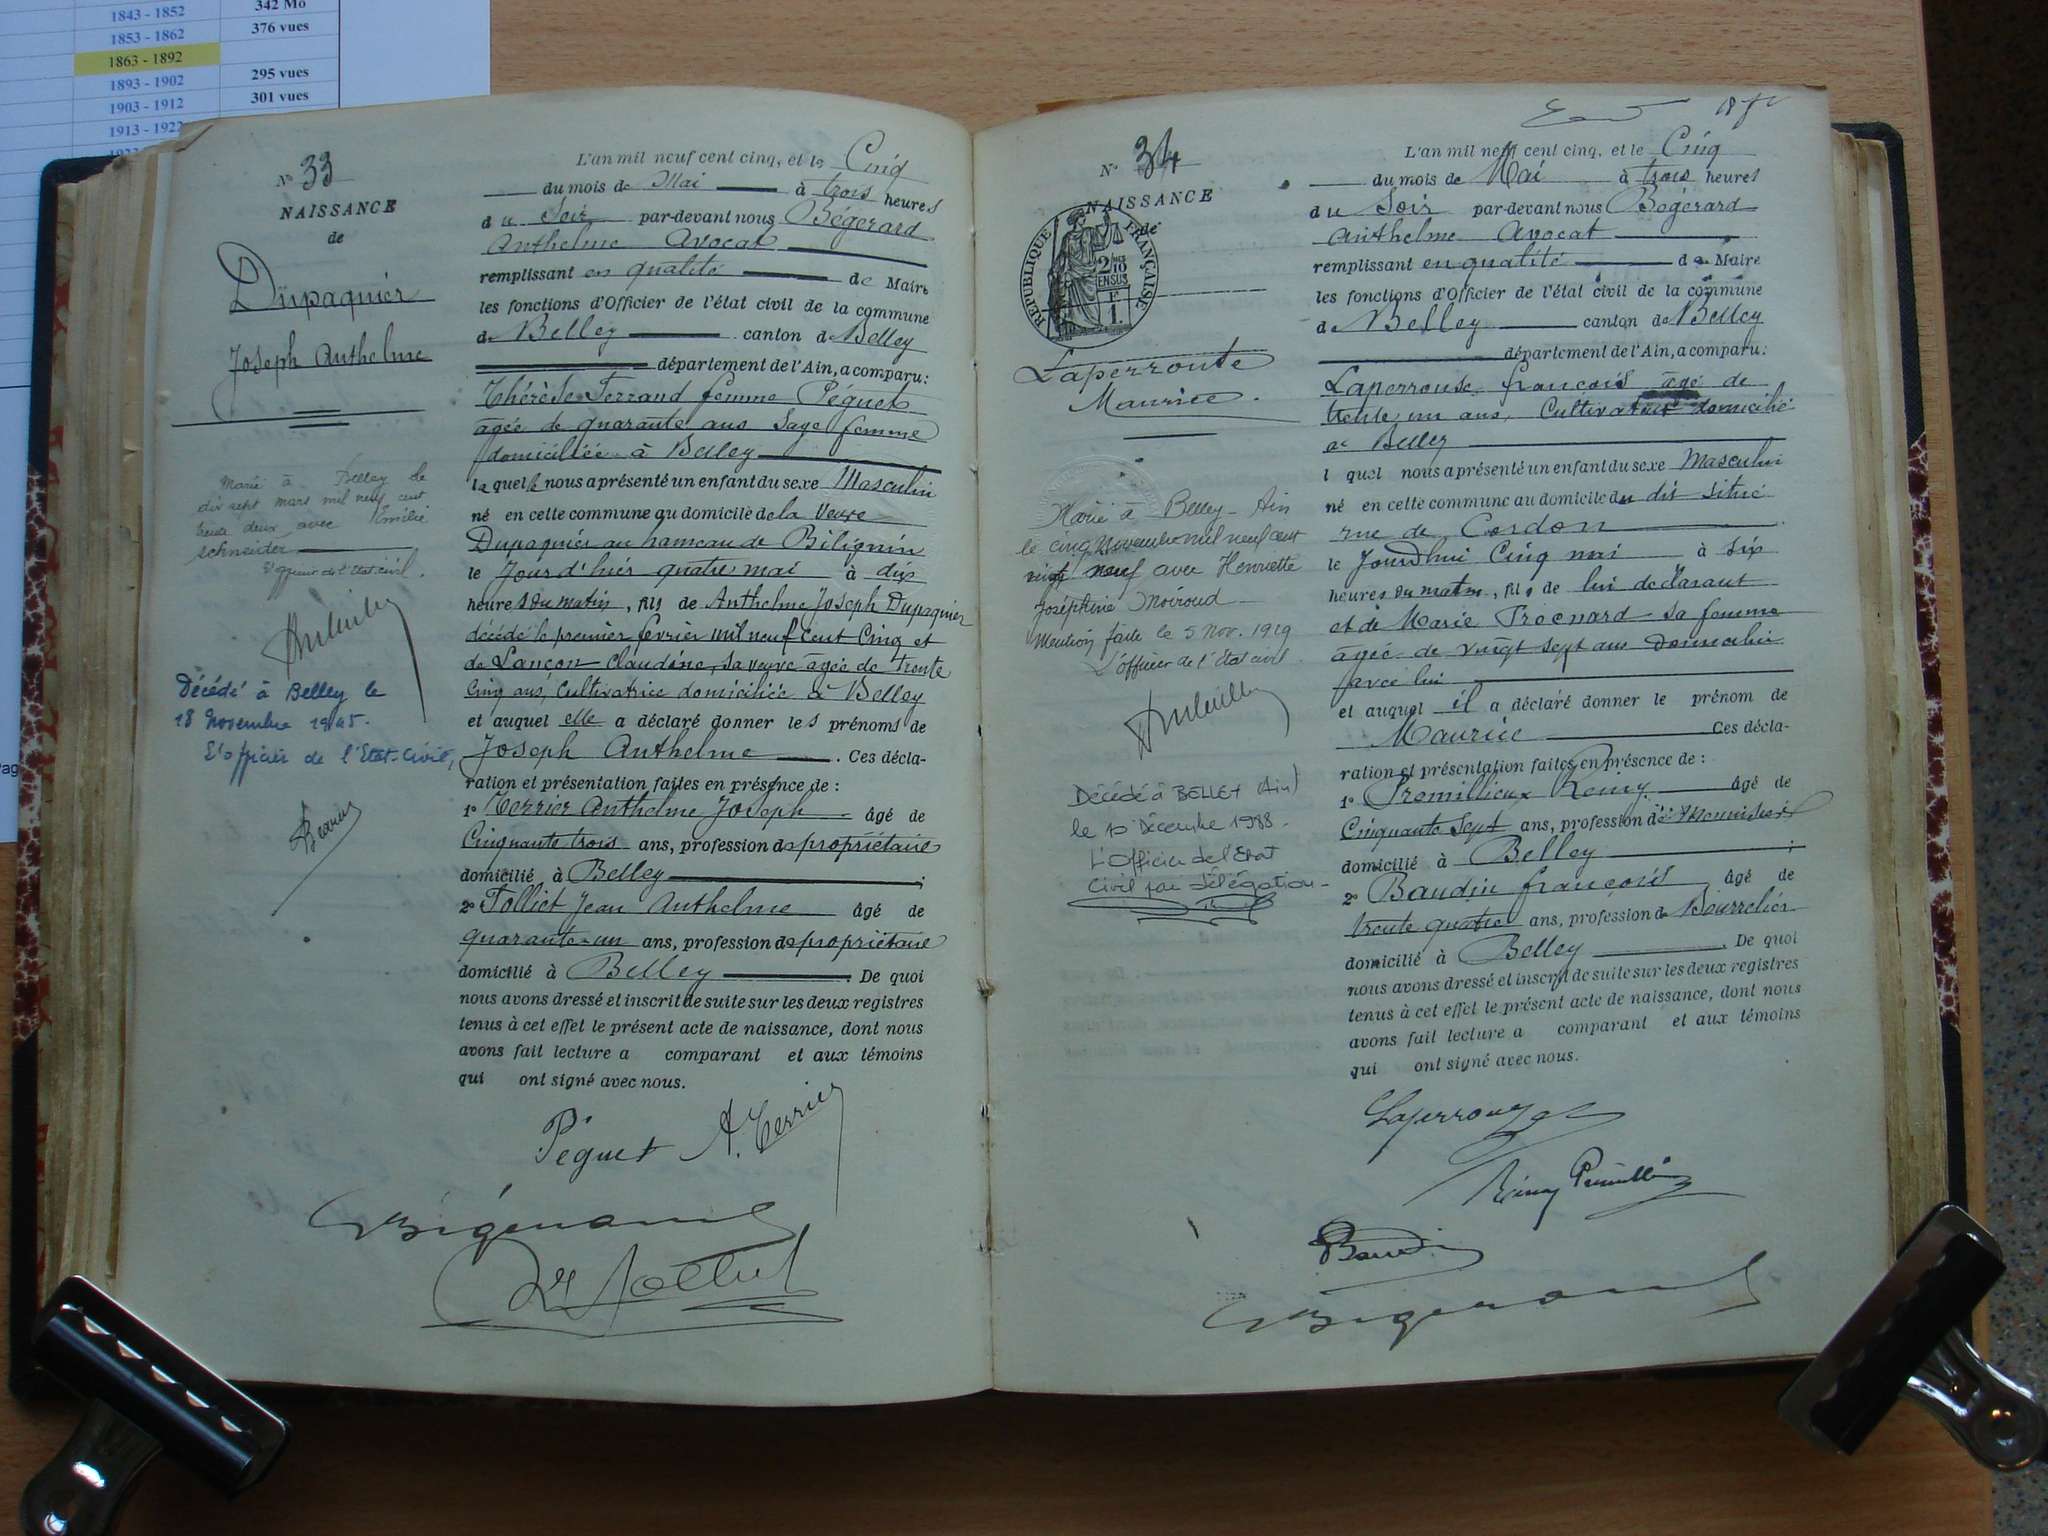 1843 - 1852 342 Mo
1853 - 1862 376 vues
1863 - 1892
1893 - 1902 295 vues
1903 - 1912 301 vues
1913 - 1922
N° 33
NAISSANCE
de
Dupaquier
Joseph Anthelme
Marié à Belley le
dix sept mars mil neuf cent
trente deux avec Emilie
schneider
L'officier de l'état civil.
Décédé à Belley le
18 Novembre 1945.
L'officier de l'Etat-Civil,
L'an mil neuf cent cinq, et le Cinq
du mois de Mai à trois heures
du Soir par-devant nous Bégerard
Anthelme Avocat
remplissant en qualité de Maire
les fonctions d'Officier de l'état civil de la commune
de Belley canton de Belley
département de l'Ain, a comparu:
Thérèse Ferrand femme Péguet
agée de quarante ans Sage femme
domiciliée à Belley
laquelle nous a présenté un enfant du sexe Masculin
né en cette commune au domicile de la Veuve
Dupaquier au hameau de Bilignin
le Jour d'hier quatre mai à dix
heures du matin, fils de Anthelme Joseph Dupaquier
décédé le premier février mil neuf cent Cinq et
de Lançon Claudine, sa veuve âgée de trente
Cinq ans, Cultivatrice domiciliée à Belley
et auquel elle a déclaré donner les prénoms de
Joseph Anthelme. Ces décla-
ration et présentation faites en présence de :
1° Terrier Anthelme Joseph âgé de
Cinquante trois ans, profession de propriétaire
domicilié à Belley;
2° Folliet Jean Anthelme âgé de
quarante-un ans, profession de propriétaire
domicilié à Belley. De quoi
nous avons dressé et inscrit de suite sur les deux registres
tenus à cet effet le présent acte de naissance, dont nous
avons fait lecture a comparant et aux témoins
qui ont signé avec nous.
Péguet A. Terrier
Bégerard
N° 34
NAISSANCE
de
RÉPUBLIQUE FRANÇAISE
2/10 EN SUS
1 F
Laperrouse
Maurice.
Marié à Belley - Ain
le cinq Novembre mil neuf cent
vingt neuf avec Henriette
Joséphine Moiroud
Mention faite le 5 Nov. 1929
L'officier de l'état civil.
Décédé à BELLEY (Ain)
le 10 Décembre 1988.
L'Officier de l'Etat
Civil par délégation
L'an mil neuf cent cinq, et le Cinq
du mois de Mai à trois heures
du Soir par-devant nous Bégerard
Anthelme Avocat
remplissant en qualité de Maire
les fonctions d'Officier de l'état civil de la commune
de Belley canton de Belley
département de l'Ain, a comparu:
Laperrouse françois âgé de
trente un ans, Cultivateur domicilié
à Belley
lquel nous a présenté un enfant du sexe Masculin
né en cette commune au domicile du dit situé
rue de Cordon
le Jourd'hui Cinq mai à six
heures du matin, fils de lui déclarant
et de Marie Trocnard sa femme
âgée de vingt sept ans Domiciliée
avec lui
et auquel il a déclaré donner le prénom de
Maurice Ces décla-
ration et présentation faites en présence de :
1° Premillieux Rémy âgé de
Cinquante Sept ans, profession de Menuisier
domicilié à Belley;
2° Baudin françois âgé de
trente quatre ans, profession de Bourrelier
domicilié à Belley. De quoi
nous avons dressé et inscrit de suite sur les deux registres
tenus à cet effet le présent acte de naissance, dont nous
avons fait lecture a comparant et aux témoins
qui ont signé avec nous.
Laperrouse
Baudin
Bégerard